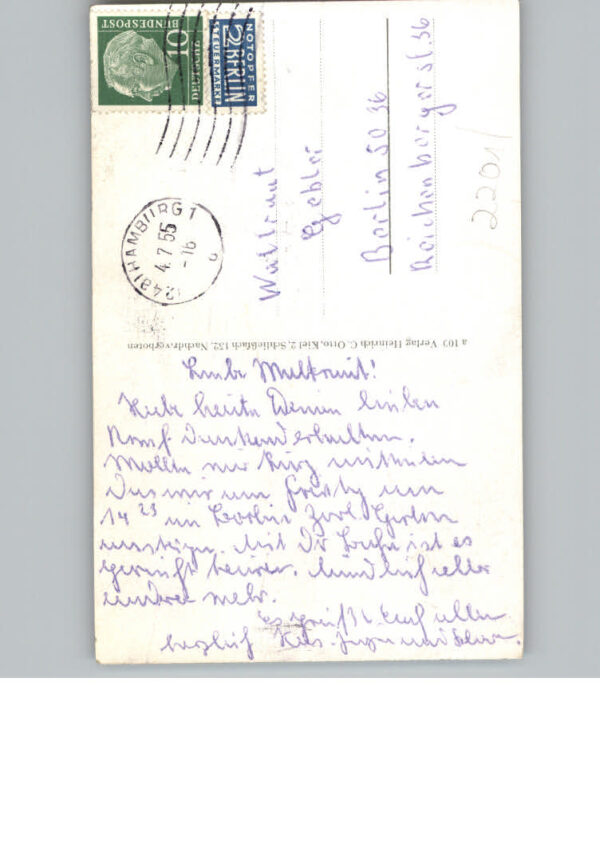 DEUTSCHE
BUNDESPOST
10
NOTOPFER
2 BERLIN
STEUERMARKE
(24a) HAMBURG 1
4.7.55
-16
Waltraut
Gebler
Berlin SO 36
Reichenberger st. 36
2201/
a 103 Verlag Heinrich C. Otto, Kiel 2, Schließfach 132, Nachdr. verboten
Liebe Waltraut!
Habe heute Deinen lieben
dankend erhalten.
Wollte nur kurz mitteilen
das wir am Freitag um
14 23 in Berlin Zool. Garten
aussteigen. Mit ist es
teurer. Mündlich alles
andere mehr.
Es grüßt Euch allen
herzlich und